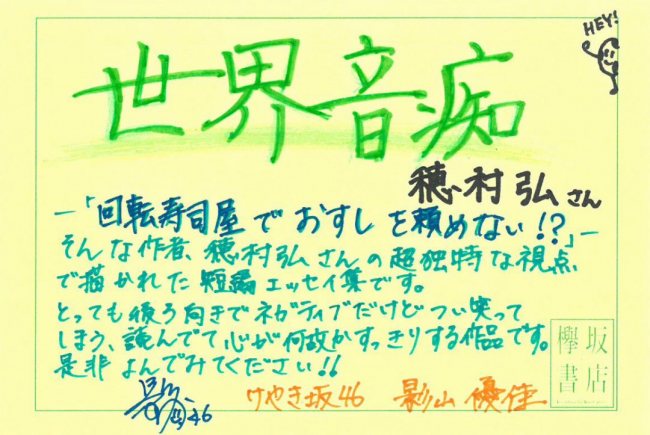 HEY!
世界音痴
穂村弘さん
―「回転寿司屋でおすしを頼めない!?」―
そんな作者、穂村弘さんの超独特な視点
で描かれた短編エッセイ集です。
とっても後ろ向きでネガティブだけどつい笑って
しまう、読んでて心が何故かすっきりする作品です。
是非よんでみてください!!
欅坂書店
46
けやき坂46 影山優佳